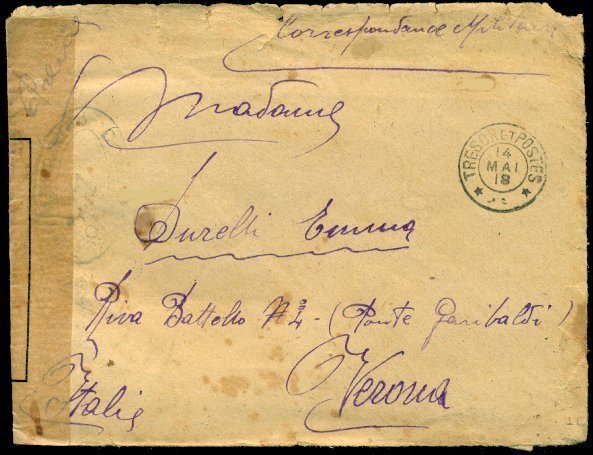 Correspondance Militaire
Madame
TRESOR ET POSTES
14
MAI
18
Surelli Emma
Riva Battello N 2 - (Ponte Garibaldi)
Italie
Verona